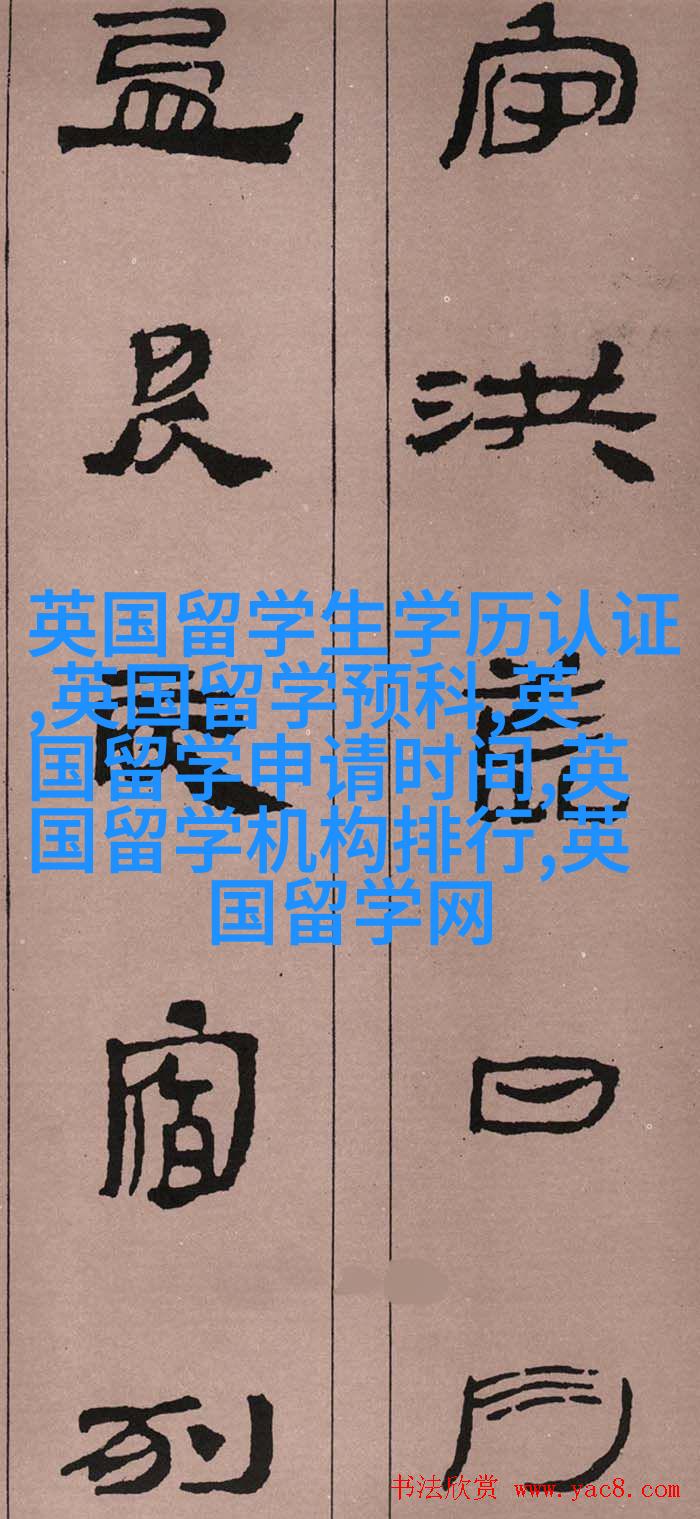 宙洪荒日月
盈昃辰宿列
英国留学生学历认证
,英国留学预科,英
国留学申请时间,英
国留学机构排行,英
国留学网
书法欣赏 www.yac8.com